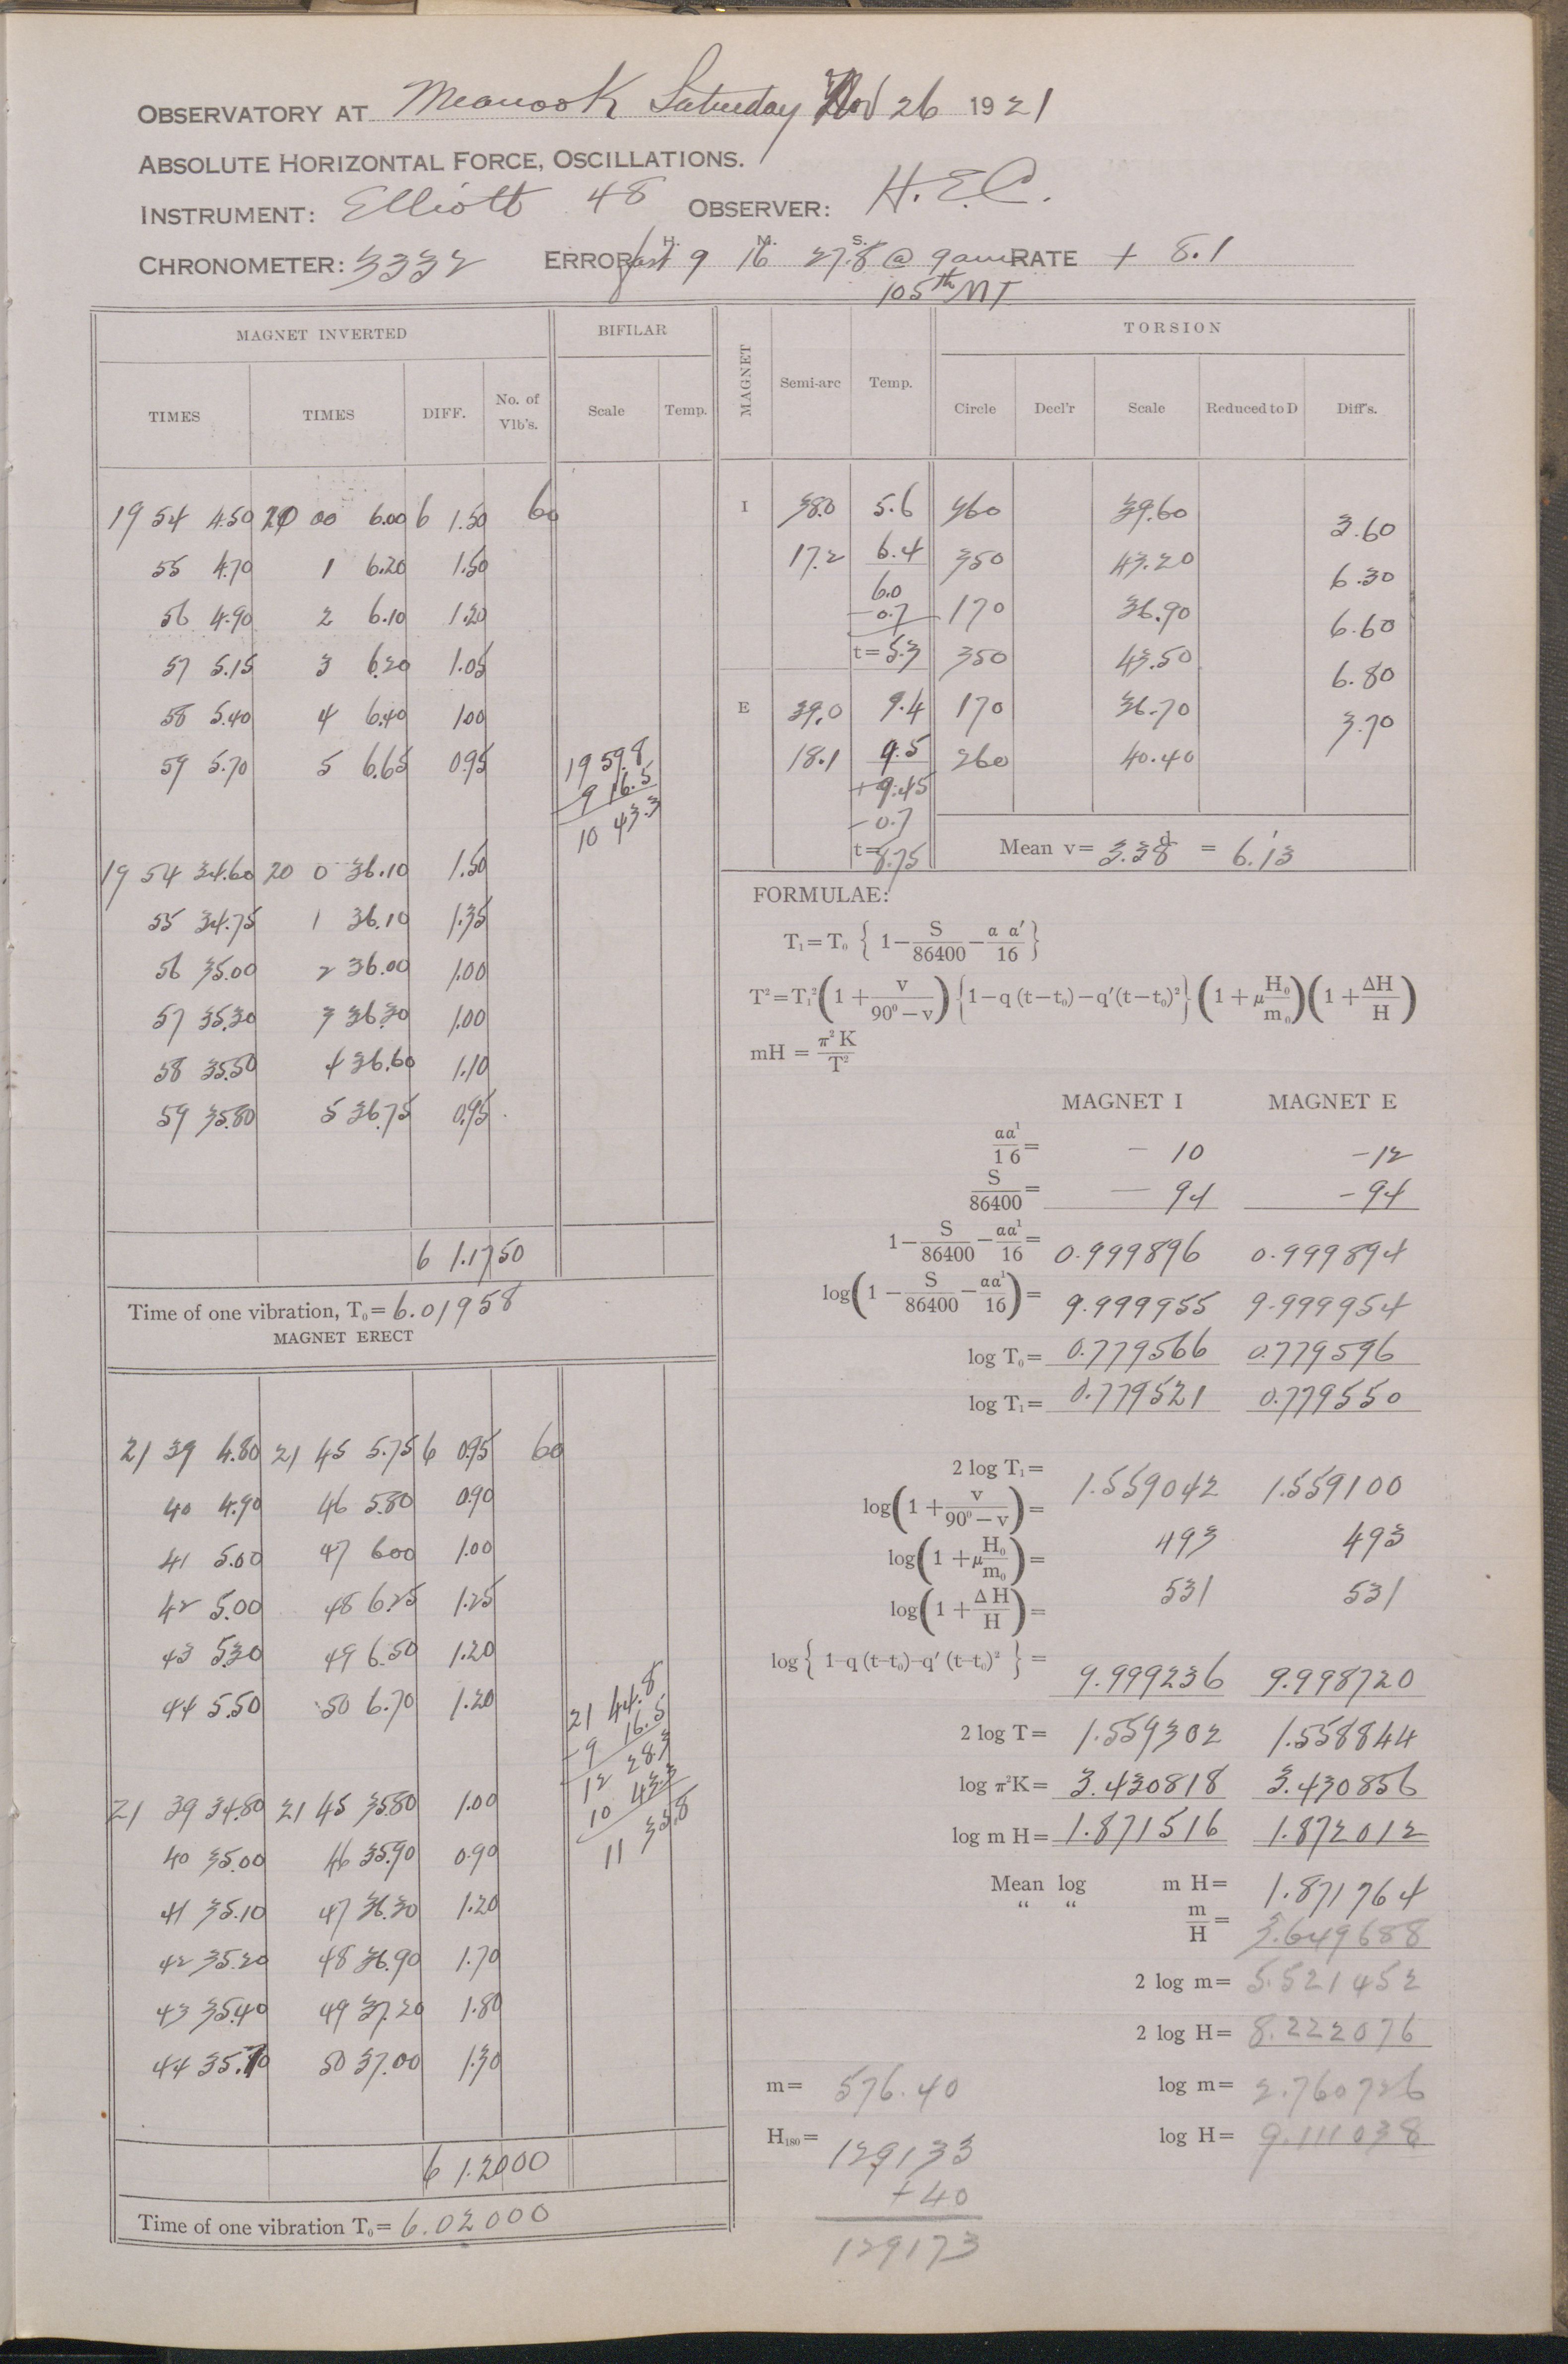 OBSERVATORY AT Meanook Saturday Nov 26 1921
ABSOLUTE HORIZONTAL FORCE, OSCILLATIONS.
INSTRUMENT: Elliott 48 OBSERVER: H.E.C.
CHRONOMETER: 3332 ERROR fast H. 9 M. 16 S. 27.8 @ 9am RATE + 8.1
105th MT
MAGNET INVERTED
BIFILAR
TIMES TIMES DIFF. No. of Vib's. Scale Temp.
19 54 4.50 20 00 6.00 6 1.50 60
55 4.70 1 6.20 1.50
56 4.90 2 6.10 1.20
57 5.15 3 6.20 1.05
58 5.40 4 6.40 1.00
59 5.70 5 6.65 0.95
19 59.8
9 16.5
10 43.3
19 54 34.60 20 0 36.10 1.50
55 34.75 1 36.10 1.35
56 35.00 2 36.00 1.00
57 35.30 3 36.30 1.00
58 35.50 4 36.60 1.10
59 35.80 5 36.75 0.95
6 1.1750
Time of one vibration, T₀= 6.01958
MAGNET ERECT
21 39 4.80 21 45 5.75 6 0.95 60
40 4.90 46 5.80 0.90
41 5.00 47 6.00 1.00
42 5.00 48 6.25 1.25
43 5.30 49 6.50 1.20
44 5.50 50 6.70 1.20
21 44.8
-9 16.5
12 28.3
10 43.3
11 35.8
21 39 34.80 21 45 35.80 1.00
40 35.00 46 35.90 0.90
41 35.10 47 36.30 1.20
42 35.20 48 36.90 1.70
43 35.40 49 37.20 1.80
44 35.70 50 37.00 1.30
6 1.2000
Time of one vibration T₀= 6.02000
TORSION
MAGNET Semi-arc Temp. Circle Decl'r Scale Reduced to D Diff's.
I 38.0 5.6 260 39.60
3.60
17.2 6.4 350 43.20
6.30
6.0
-0.7 170 36.90
6.60
t= 5.3 350 43.50
6.80
E 39.0 9.4 170 36.70
3.70
18.1 9.5 260 40.40
+9.45
-0.7
t= 8.75
Mean v= 3.38 d = 6.13'
FORMULAE:
T₁=T₀ { 1−S/86400−α α′/16 }
T²=T₁²(1+v/90°−v){1−q (t−t₀)−q′(t−t₀)²}(1+μH₀/m₀)(1+ΔH/H)
mH = π²K/T²
MAGNET I MAGNET E
αα¹/16= − 10 −12
S/86400= − 94 −94
1−S/86400−αα¹/16= 0.999896 0.999894
log(1−S/86400−αα¹/16)= 9.999955 9.999954
log T₀= 0.779566 0.779596
log T₁= 0.779521 0.779550
2 log T₁= 1.559042 1.559100
log(1+v/90°−v)= 493 493
log(1+μH₀/m₀)= 531 531
log(1+ΔH/H)=
log{ 1−q (t−t₀)−q′ (t−t₀)² }= 9.999236 9.998720
2 log T= 1.559302 1.558844
log π²K= 3.430818 3.430856
log m H= 1.871516 1.872012
Mean log m H= 1.871764
“ “ m/H= 3.649688
2 log m= 5.521452
2 log H= 8.222076
m= 576.40 log m= 2.760726
H₁₈₀= 129133 log H= 9.111038
+40
129173